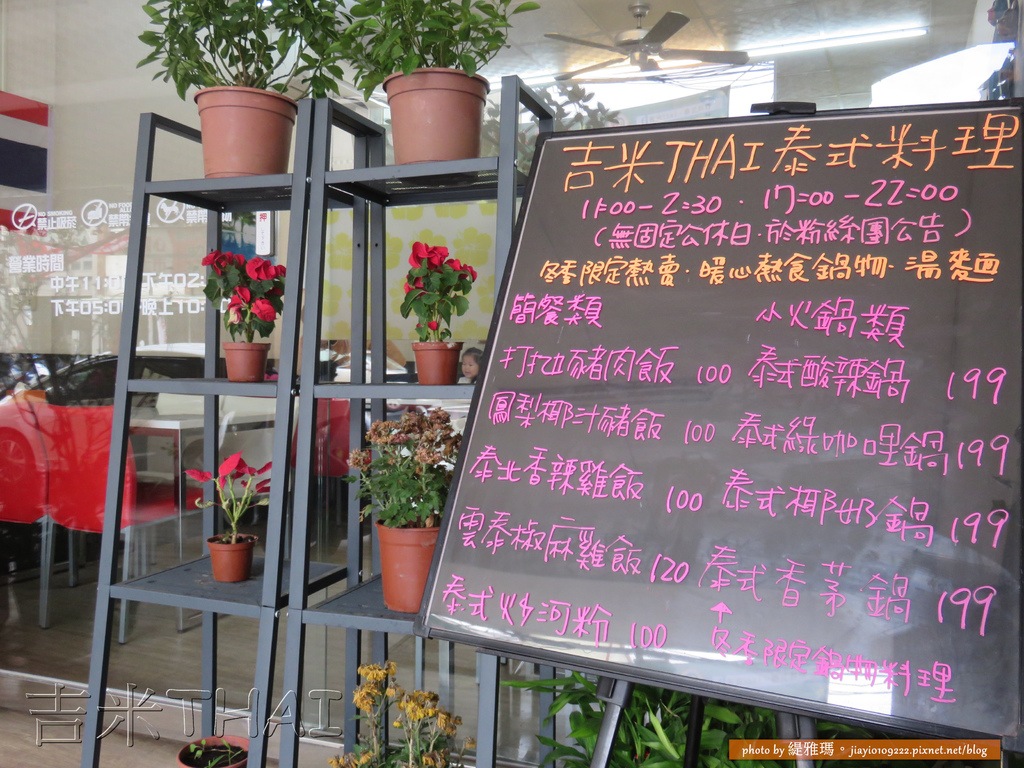 吉米THAI泰式料理
11:00-2:30 · 17:00-22:00
(無固定公休日·於粉絲團公告)
冬季限定熱賣·暖心熱食鍋物·湯麵
簡餐類
打拋豬肉飯 100
鳳梨椰汁豬飯 100
泰北香辣雞飯 100
雲泰椒麻雞飯 120
泰式炒河粉 100
小火鍋類
泰式酸辣鍋 199
泰式綠咖哩鍋 199
泰式椰奶鍋 199
泰式香茅鍋 199
↑
冬季限定鍋物料理
NO SMOKING
禁止吸菸
禁帶
禁帶
押
營業時間
中午11:00 下午02:
下午05:00 晚上10:
吉米THAI
photo by 緹雅瑪。jiayi0109222.pixnet.net/blog